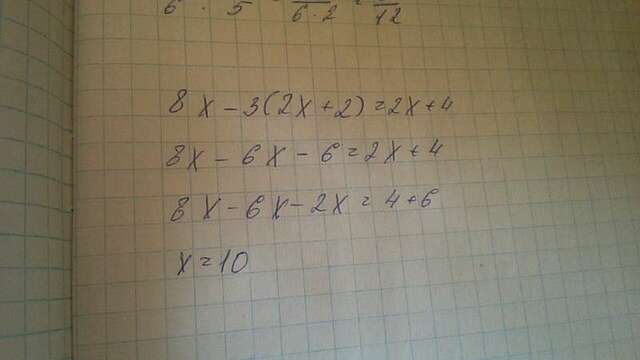 6 · 5 6·2 = 12
8x - 3(2x+2) = 2x+4
8x - 6x - 6 = 2x+4
8x - 6x - 2x = 4+6
x = 10